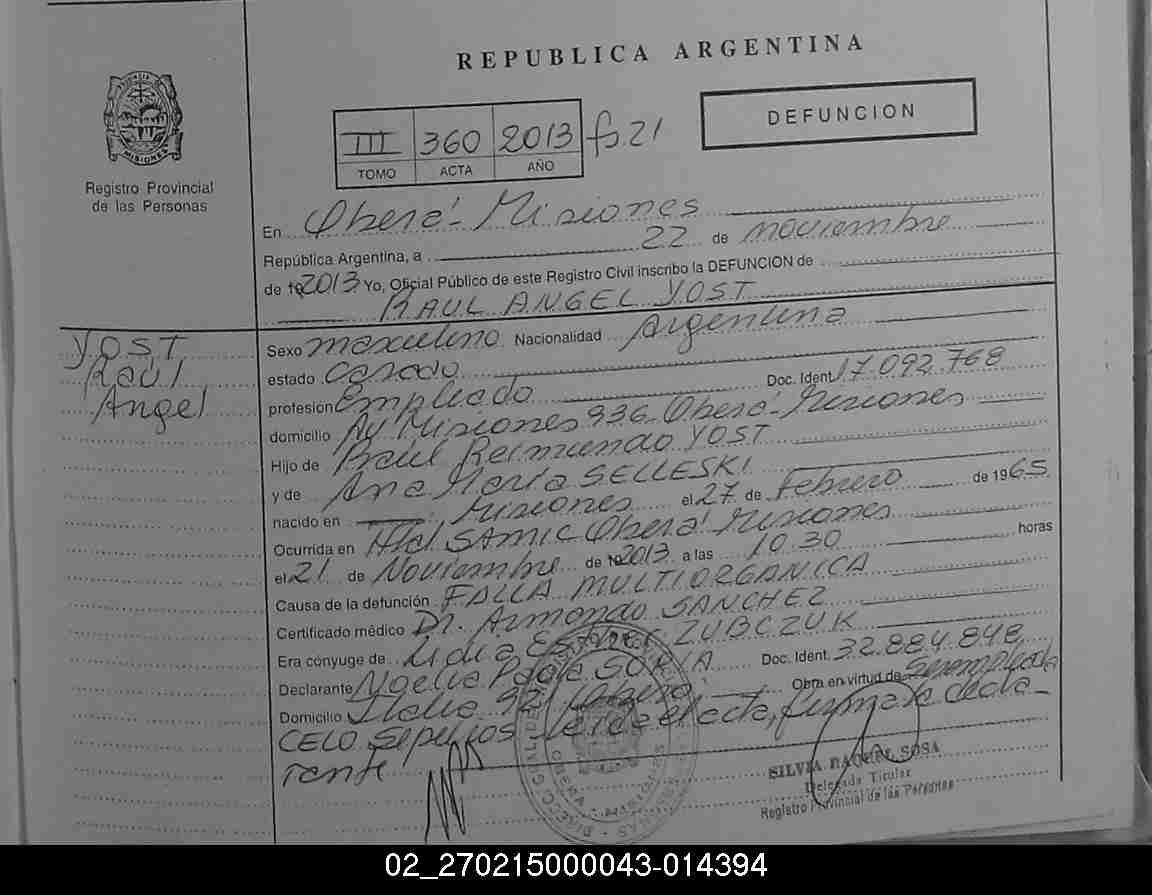 REPUBLICA ARGENTINA
DEFUNCION
III 360 2013 fs. 21
TOMO ACTA AÑO
MISIONES
Registro Provincial
de las Personas
En Oberá - Misiones
República Argentina, a 22 de noviembre
de 19 2013 Yo, Oficial Público de este Registro Civil inscribo la DEFUNCION de
RAUL ANGEL YOST
YOST
Raúl
Angel
Sexo masculino Nacionalidad Argentina
estado casado Doc. Ident. 17.092.768
profesión Empleado
domicilio Av Misiones 936 - Oberá - Misiones
Hijo de Raúl Reimundo YOST
y de Ana María SELLESKI
nacido en Misiones el 27 de Febrero de 1965
Ocurrida en SAMIC Oberá Misiones
el 21 de Noviembre de 19 2013 a las 10.30 horas
Causa de la defunción FALLA MULTIORGANICA
Certificado médico Dr. Armando SANCHEZ
Era cónyuge de Lidia Ester ZUBCZUK
Declarante Noelia Paola SORIA Doc. Ident. 32.884.848
Domicilio Italia Obra en virtud de Ser empleada
CELO Sepelios. Leída el acta, firma la decla-
rante
SILVIA RAQUEL SOSA
Delegada Titular
Registro Provincial de las Personas
02_270215000043-014394